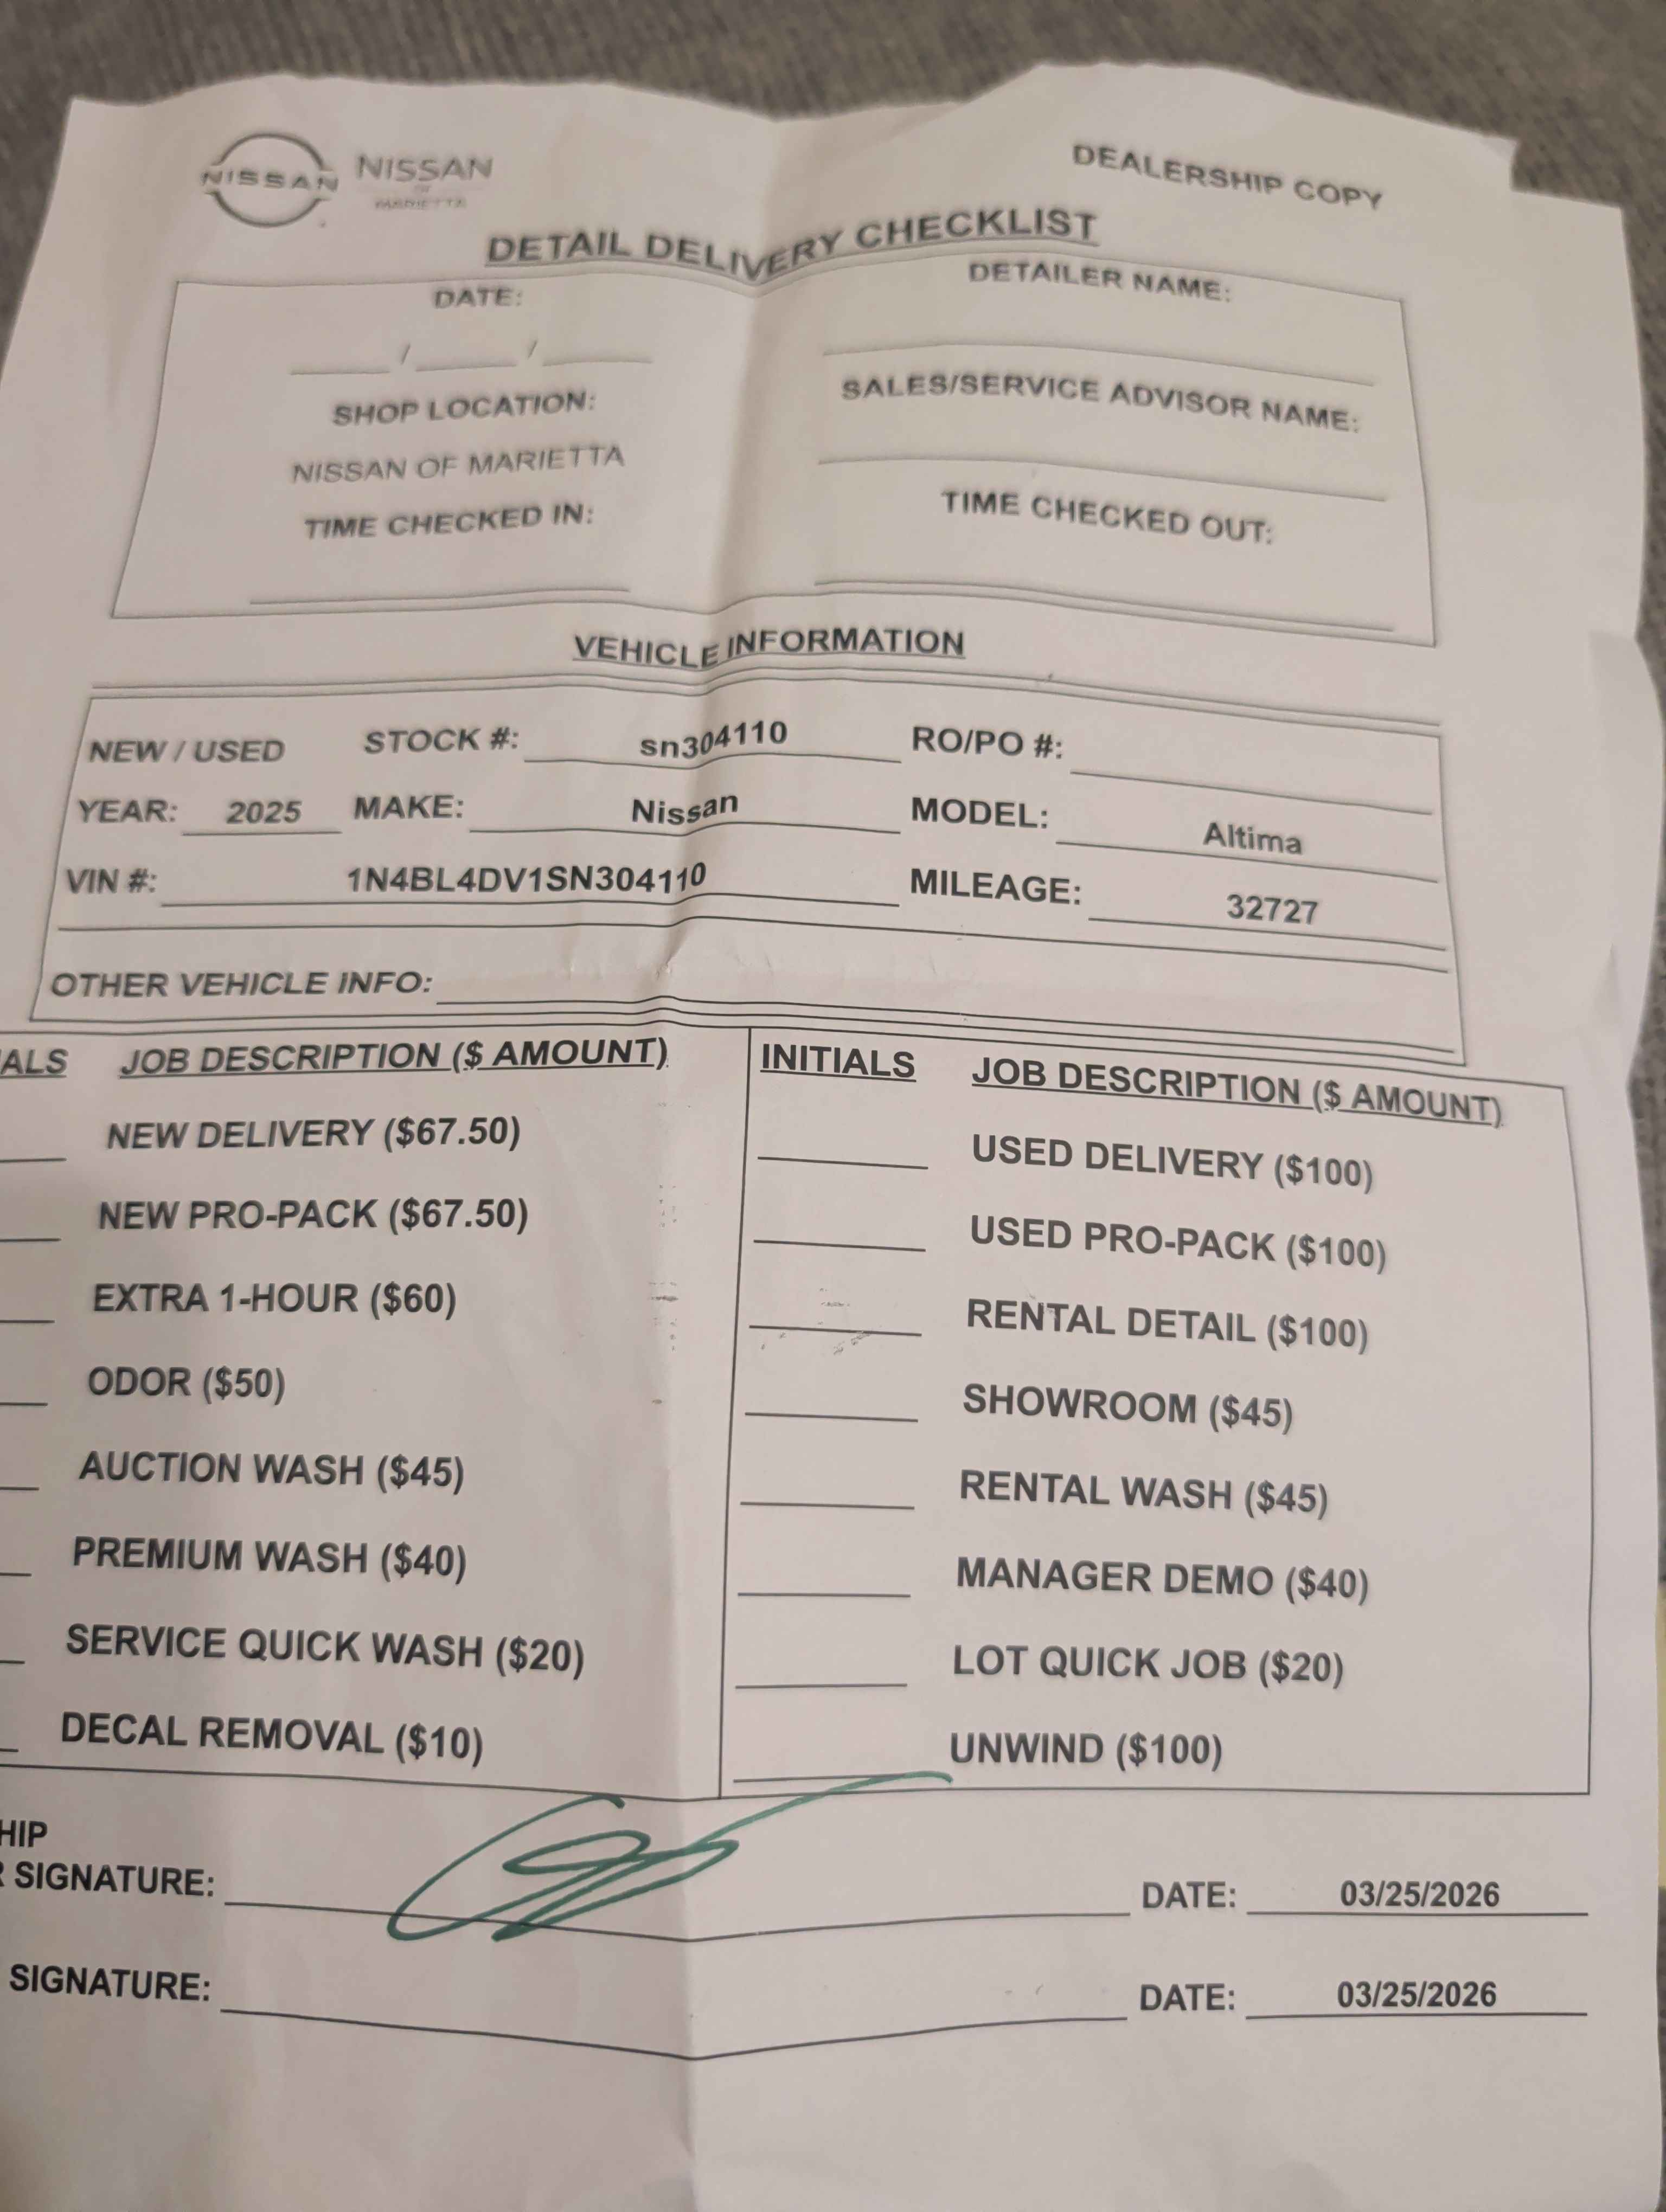 NISSAN NISSAN
OF
MARIETTA
DEALERSHIP COPY
DETAIL DELIVERY CHECKLIST
DATE:
DETAILER NAME:
/ /
SHOP LOCATION:
SALES/SERVICE ADVISOR NAME:
NISSAN OF MARIETTA
TIME CHECKED IN:
TIME CHECKED OUT:
VEHICLE INFORMATION
NEW / USED STOCK #: sn304110 RO/PO #:
YEAR: 2025 MAKE: Nissan MODEL: Altima
VIN #: 1N4BL4DV1SN304110 MILEAGE: 32727
OTHER VEHICLE INFO:
ALS JOB DESCRIPTION ($ AMOUNT) INITIALS JOB DESCRIPTION ($ AMOUNT)
NEW DELIVERY ($67.50) USED DELIVERY ($100)
NEW PRO-PACK ($67.50) USED PRO-PACK ($100)
EXTRA 1-HOUR ($60) RENTAL DETAIL ($100)
ODOR ($50) SHOWROOM ($45)
AUCTION WASH ($45) RENTAL WASH ($45)
PREMIUM WASH ($40) MANAGER DEMO ($40)
SERVICE QUICK WASH ($20) LOT QUICK JOB ($20)
DECAL REMOVAL ($10) UNWIND ($100)
HIP
R SIGNATURE: DATE: 03/25/2026
SIGNATURE: DATE: 03/25/2026